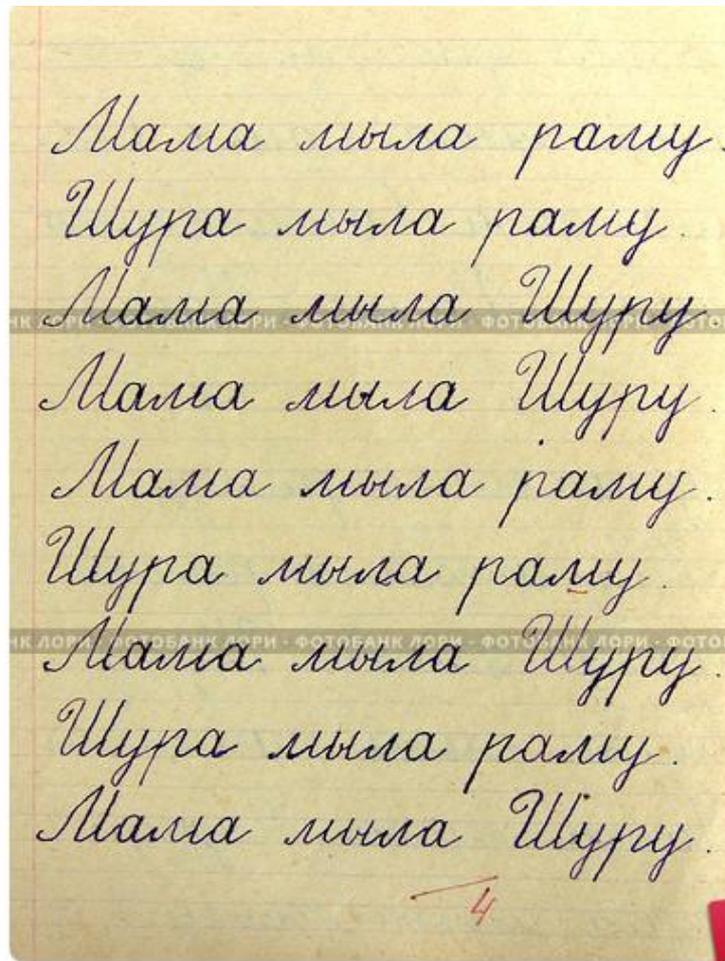 Мама мыла раму.
Шура мыла раму.
Мама мыла Шуру
НК ЛОРИ · ФОТОБАНК ЛОРИ · ФОТОБАНК ЛОРИ · ФОТО
Мама мыла Шуру.
Мама мыла раму.
Шура мыла раму.
Мама мыла Шуру.
НК ЛОРИ · ФОТОБАНК ЛОРИ · ФОТОБАНК ЛОРИ · ФОТО
Шура мыла раму.
Мама мыла Шуру.
4